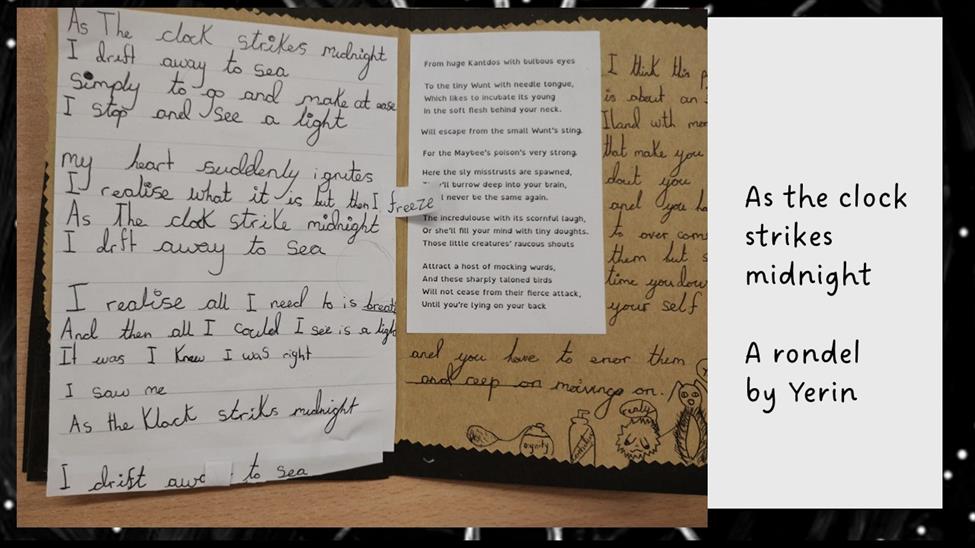 As The clock strikes midnight
I drift away to sea
Simply to go and make at ease
I stop and See a light
my heart suddenly ignites
I realise what it is but then I freeze
As The clock strike midnight
I drft away to sea
I realise all I need to is
And then all I could I see is a
It was I Knew I was right
I saw me
As the Klock striks midnight
I drift to sea
From huge Kantdos with bulbous eyes
To the tiny Wunt with needle tongue,
Which likes to incubate its young
In the soft flesh behind your neck.
Will escape from the small Wunt's sting.
For the Maybee's poison's very strong.
Here the sly misstrusts are spawned,
burrow deep into your brain,
never be the same again.
The incredulouse with its scornful laugh,
Or she'll fill your mind with tiny doughts.
Those little creatures' raucous shouts
Attract a host of mocking wurds,
And these sharply taloned birds
Will not cease from their fierce attack,
Until you're lying on your back
I think this
is about an
Iland with
that make you
dout you
and you
to over
them but
time you
your self
and you have to enor them
and ceep on moivings on.
As the clock
strikes
midnight
A rondel
by Yerin